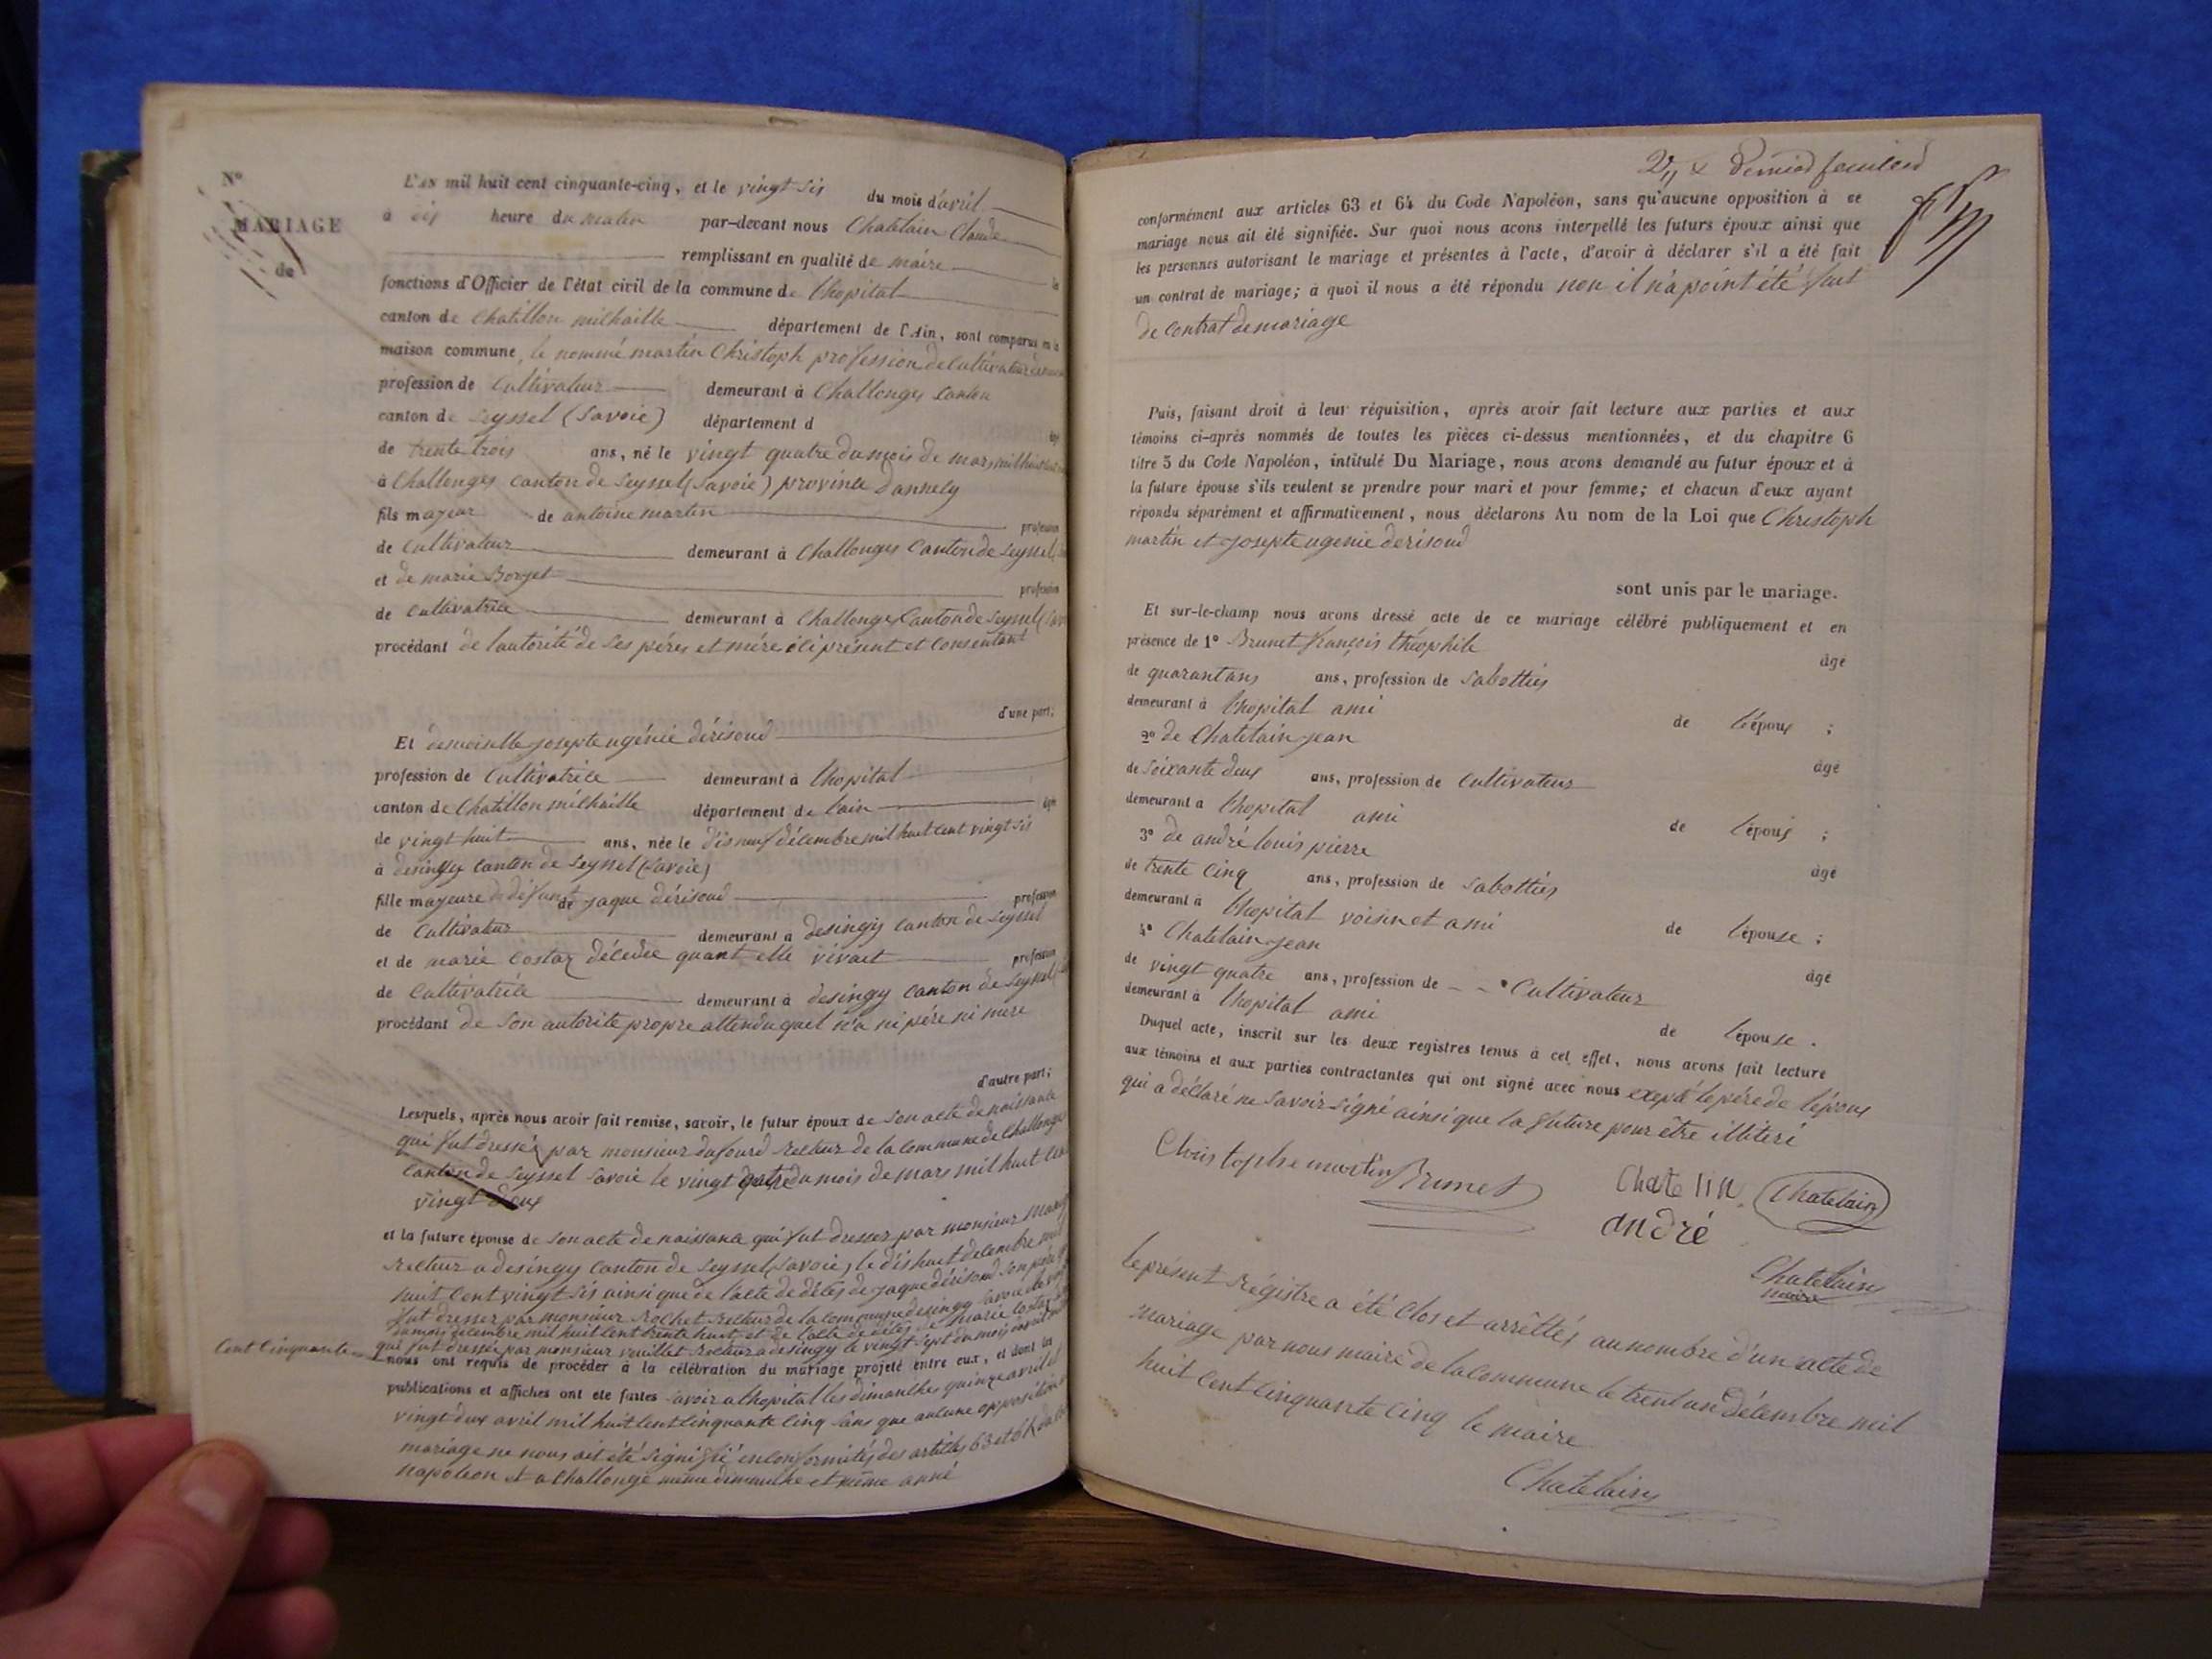 N°
MARIAGE
de
L'AN mil huit cent cinquante-cinq, et le vingt sis du mois d'avril
à dis heure du matin par-devant nous Chatelain Claude
remplissant en qualité de maire les
fonctions d'Officier de l'état civil de la commune de lhopital
canton de Chatillon milhaille département de l'Ain, sont comparus en la
maison commune, le nommé martin Christoph profession de cultivateur
profession de Cultivateur demeurant à Challonges Canton
canton de Seyssel (Savoie) département d
âgé
de trente trois ans, né le vingt quatre du mois de mars mil huit cent
à Challonges canton de Seyssel (Savoie) province d'annecy
fils majeur de antoine martin profession
de Cultivateur demeurant à Challonges Canton de Seyssel
et de marie Borget profession
de Cultivatrice demeurant à Challonges Canton de Seyssel
procédant de l'autorité de ses péres et mére ici présent et Consentant
d'une part;
Et demoiselle josepte ugénie dérisoud
profession de Cultivatrice demeurant à lhopital
canton de Chatillon milhaille département de lain âgée
de vingt huit ans, née le dis neuf décembre mil huit cent vingt sis
à desingy canton de Seyssel (Savoie)
fille majeure de défunt de jaque dérisoud profession
de Cultivateur demeurant à desingy Canton de Seyssel
et de marie Costaz décédée quant elle vivait profession
de Cultivatrice demeurant à desingy canton de Seyssel
procédant de son autorite propre attendu quel n'a ni pére ni mere
d'autre part;
Lesquels, après nous avoir fait remise, savoir, le futur époux de son acte de naissance
qui fut dressée par monsieur dufourd Recteur de la Commune de Challonges
Canton de Seyssel Savoie le vingt quatre du mois de mars mil huit cent
vingt deux
et la future épouse de son acte de naissance qui fut dresser par monsieur
Recteur a desingy Canton de Seyssel (Savoie) le dis huit decembre mil
huit cent vingt sis ainsi que de l'acte de décés de jaque dérisoud son père
fut dresser par monsieur Rochet Recteur de la commune desingy Savoie
du mois décembre mil huit cent trente huit et de l'acte de décés de marie Costaz
qui fut dressée par monsieur vouillet Recteur a desingy le vingt sept du mois
Cent Cinquante
nous ont requis de procéder à la célébration du mariage projeté entre eux, et dont les
publications et affiches ont été faites savoir a lhopital les dimanches quinze avril et
vingt deux avril mil huit cent cinquante cinq sans que aucune opposition
mariage ne nous ait été signifié en conformités des articles 63 et 64 du
napoleon et a Challonge même dimanche et même anné
2 dernied feuilerd
conformément aux articles 63 et 64 du Code Napoléon, sans qu'aucune opposition à ce
mariage nous ait été signifiée. Sur quoi nous avons interpellé les futurs époux ainsi que
les personnes autorisant le mariage et présentes à l'acte, d'avoir à déclarer s'il a été fait
un contrat de mariage; à quoi il nous a été répondu non il n'a point été fait
de contrat de mariage
Puis, faisant droit à leur réquisition, après avoir fait lecture aux parties et aux
témoins ci-après nommés de toutes les pièces ci-dessus mentionnées, et du chapitre 6
titre 5 du Code Napoléon, intitulé Du Mariage, nous avons demandé au futur époux et à
la future épouse s'ils veulent se prendre pour mari et pour femme; et chacun d'eux ayant
répondu séparément et affirmativement, nous déclarons Au nom de la Loi que Christoph
martin et josepte ugenie derisoud
sont unis par le mariage.
Et sur-le-champ nous avons dressé acte de ce mariage célébré publiquement et en
présence de 1° Brunet françois théophile
âgé
de quarantans ans, profession de sabottiés
demeurant à lhopital ami de l'époux ;
2° de Chatelain jean
âgé
de soixante deux ans, profession de Cultivateur
demeurant à lhopital ami de l'épous ;
3° de andré louis pierre
âgé
de trente cinq ans, profession de sabottiés
demeurant à lhopital voisin et ami de l'épouse ;
4° Chatelain jean
âgé
de vingt quatre ans, profession de Cultivateur
demeurant à lhopital ami de l'épouse .
Duquel acte, inscrit sur les deux registres tenus à cet effet, nous avons fait lecture
aux témoins et aux parties contractantes qui ont signé avec nous exepté le pére de l'épous
qui a déclaré ne savoir signé ainsi que la future pour être illiteré
Christophe martin Brunet Chatelin Chatelain
andré
Chatelain
maire
le présent Régistre a été Clos et arrêttés au nombre d'un acte de
mariage par nous maire de la commune le trent un décembre mil
huit cent cinquante cinq le maire
Chatelain